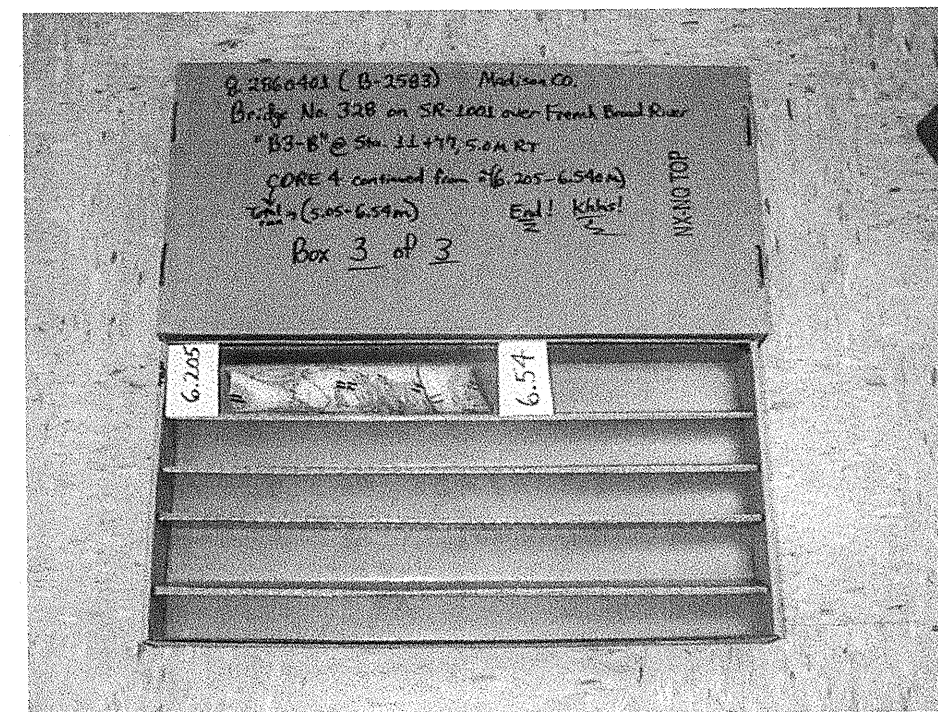 8.2860401 (B-2583) Madison Co.
Bridge No. 328 on SR-1001 over French Broad River
"B3-B" @ Sta. 11+77, 5.0m RT
CORE 4 continued from (6.205-6.540m)
Total (5.05-6.54m) End!
Box 3 of 3
NX-NO TOP
6.205
6.54